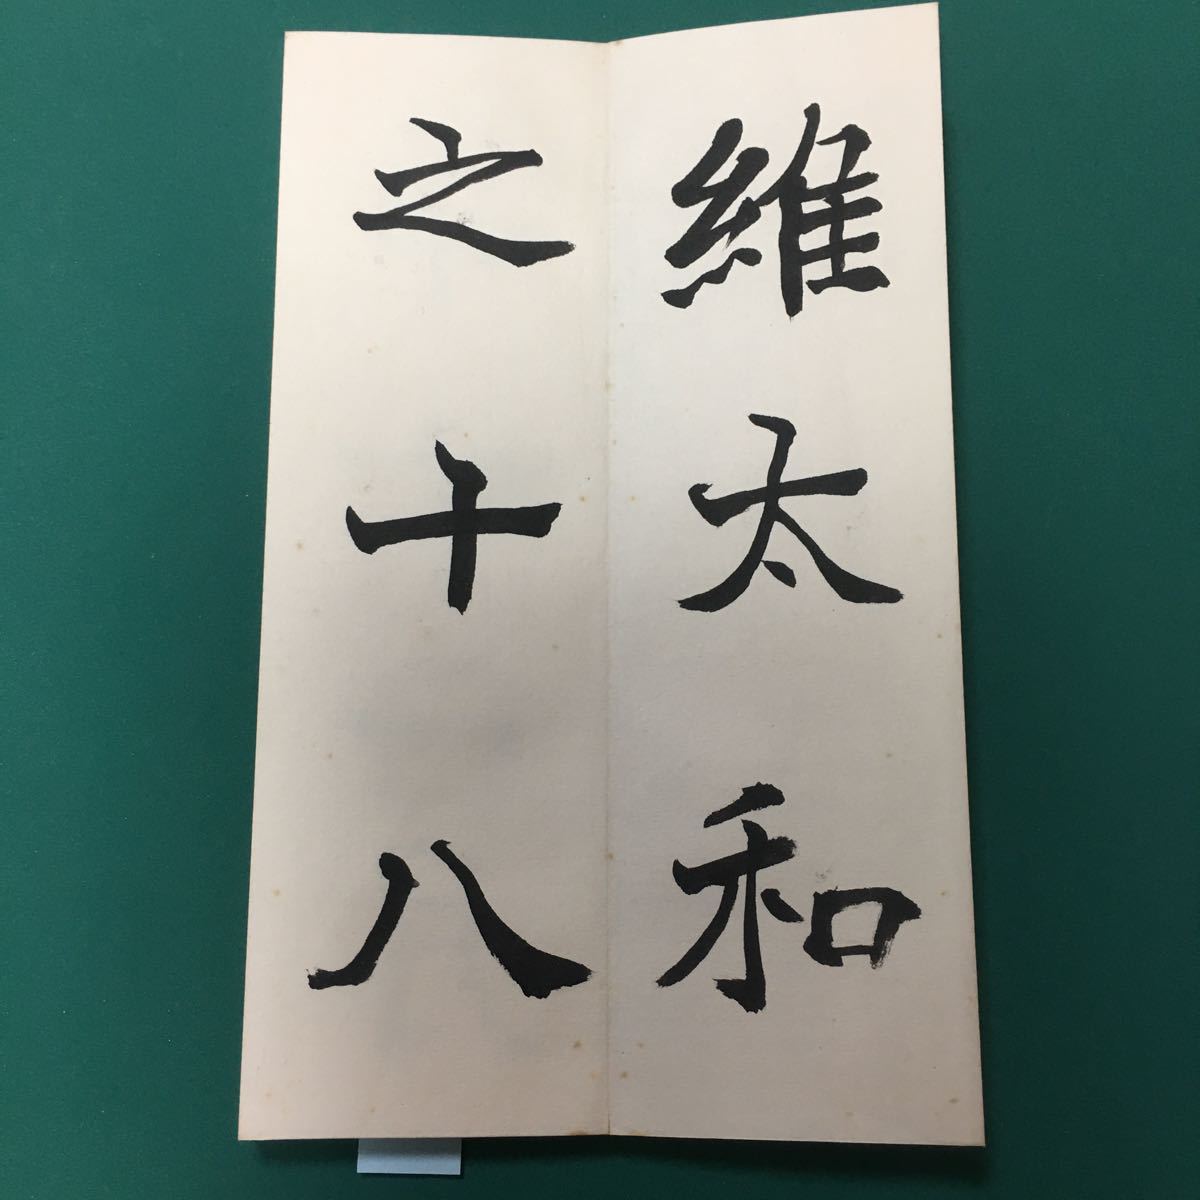 維太和
之十八